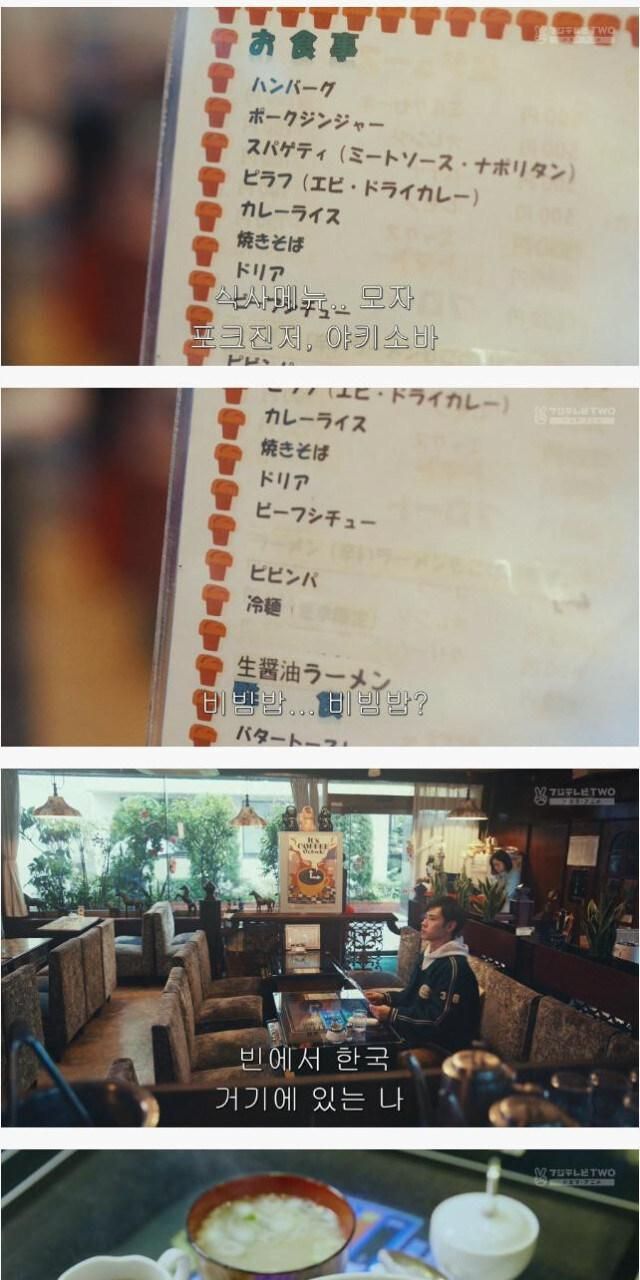 フジテレビTWO
お食事
ハンバーグ
ポークジンジャー
スパゲティ（ミートソース・ナポリタン）
ピラフ（エビ・ドライカレー）
カレーライス
焼きそば
ドリア
ビーフシチュー
식사메뉴.. 모자
포크진저, 야키소바
ビビンバ
フジテレビTWO
ピラフ（エビ・ドライカレー）
カレーライス
焼きそば
ドリア
ビーフシチュー
ビビンバ
冷麺
生醤油ラーメン
비빔밥... 비빔밥?
バタートースト
フジテレビTWO
IT'S
COFFEE
빈에서 한국
거기에 있는 나
フジテレビTWO